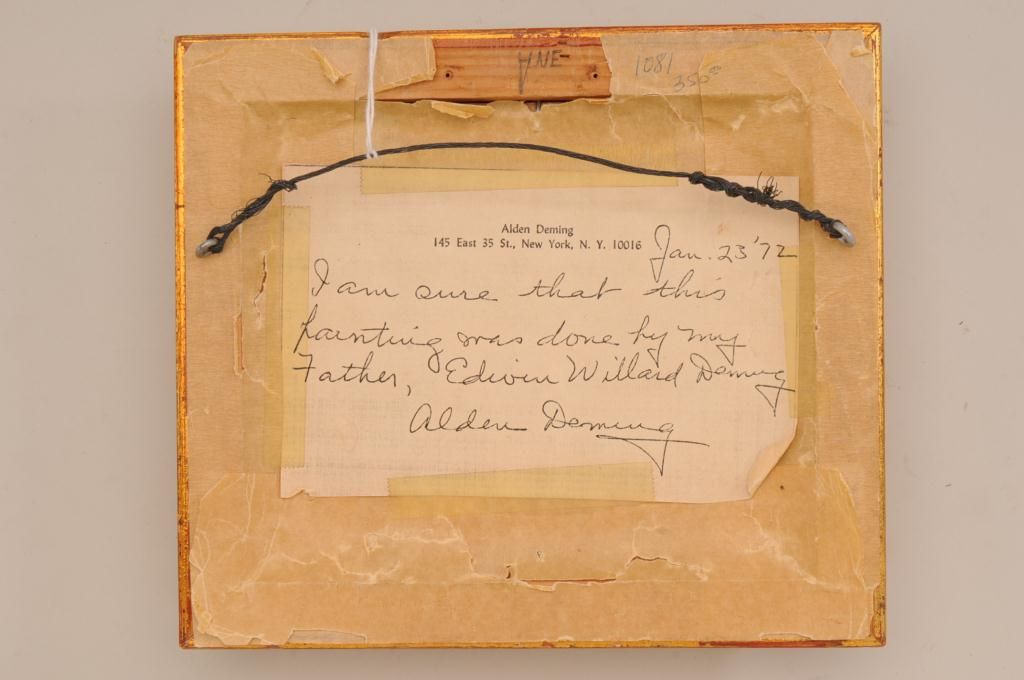 1081
350⁰⁰
Alden Deming
145 East 35 St., New York, N. Y. 10016
Jan. 23 '72
I am sure that this
painting was done by my
Father, Edwin Willard Deming
Alden Deming